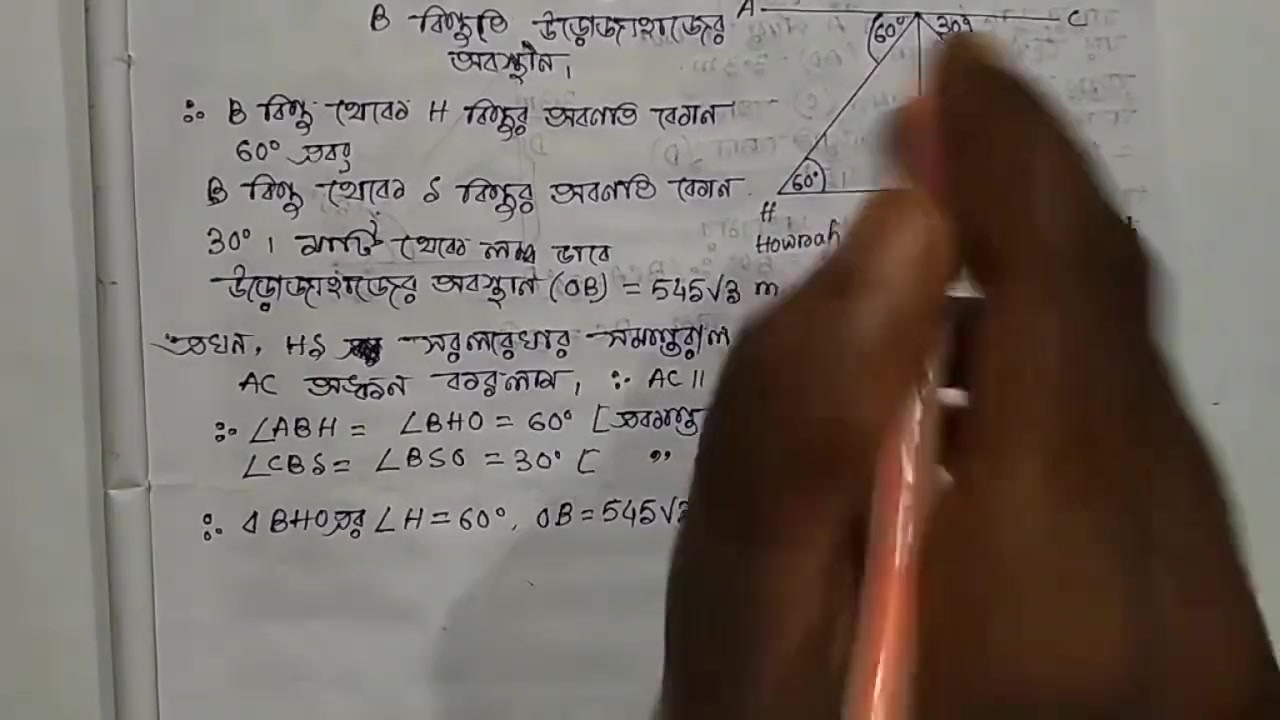 B বিন্দুতে উড়োজাহাজের
অবস্থান।
∴ B বিন্দু থেকে H বিন্দুর অবনতি কোন
60° এবং
B বিন্দু থেকে S বিন্দুর অবনতি কোন
30°। মাটি থেকে লম্ব ভাবে
উড়োজাহাজের অবস্থান (OB) = 545√3 m
এখন, HS সরলরেখার সমান্তরাল
AC অঙ্কন করলাম, ∴ AC ||
∴ ∠ABH = ∠BHO = 60° [একান্ত
∠CBS = ∠BSO = 30° [ ,,
∴ ∆BHO এর ∠H = 60°, OB = 545√3
A C
60° 30°
60°
H
Howrah